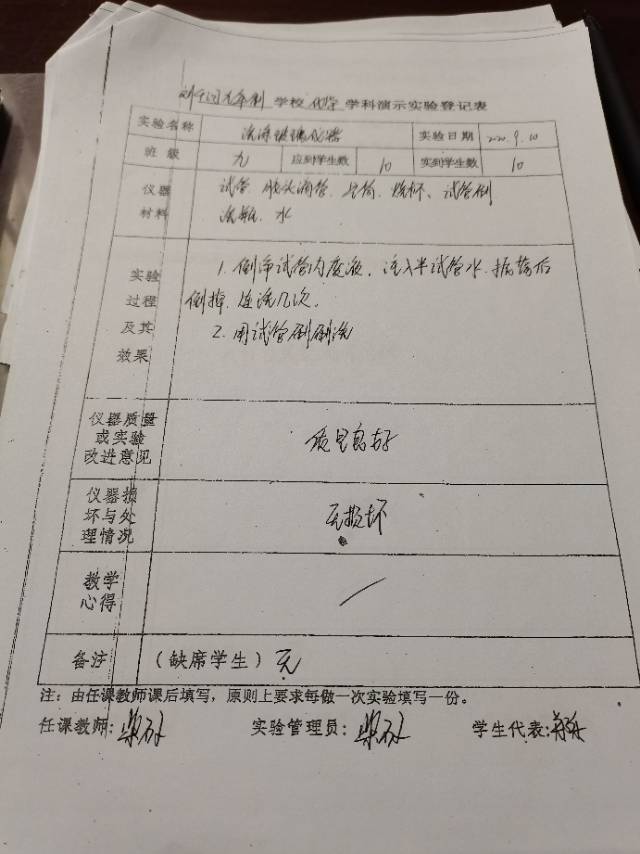 学校 化学 学科演示实验登记表
实验名称 洗涤玻璃仪器 实验日期 2020.9.10
班级 九 应到学生数 10 实到学生数 10
仪器 试管、胶头滴管、量筒、烧杯、试管刷
材料 洗瓶、水
实验
过程
及其
效果
1. 倒净试管内废液,注入半试管水,振荡后
倒掉,连洗几次。
2. 用试管刷刷洗
仪器质量
或实验
改进意见
质量良好
仪器损
坏与处
理情况
无损坏
教学
心得
备注 (缺席学生) 无
注:由任课教师课后填写,原则上要求每做一次实验填写一份。
任课教师: 实验管理员: 学生代表: